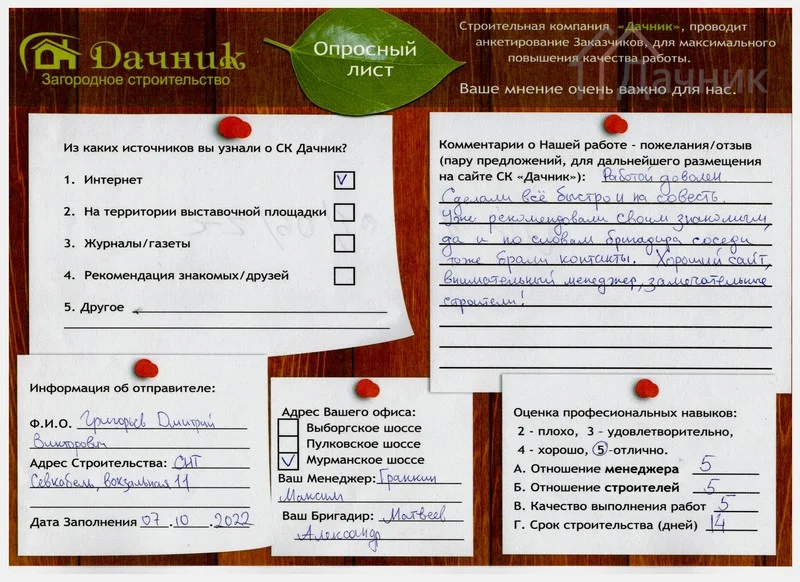 Дачник
Загородное строительство
Опросный
лист
Строительная компания «Дачник», проводит
анкетирование Заказчиков, для максимального
повышения качества работы.
Ваше мнение очень важно для нас.
Дачник
Из каких источников вы узнали о СК Дачник?
1. Интернет V
2. На территории выставочной площадки
3. Журналы/газеты
4. Рекомендация знакомых/друзей
5. Другое
Комментарии о Нашей работе - пожелания/отзыв
(пару предложений, для дальнейшего размещения
на сайте СК «Дачник»): Работой доволен
Сделали всё быстро и на совесть.
Уже рекомендовали своим знакомым,
да и по словам бригадира соседи
тоже брали контакты. Хороший сайт,
внимательный менеджер, замечательные
строители!
Информация об отправителе:
Ф.И.О. Григорьев Дмитрий
Викторович
Адрес Строительства: СНТ
Севкабель, вокзальная 11
Дата Заполнения 07.10.2022
Адрес Вашего офиса:
Выборгское шоссе
Пулковское шоссе
V Мурманское шоссе
Ваш Менеджер: Гранкин
Максим
Ваш Бригадир: Матвеев
Александр
Оценка професиональных навыков:
2 - плохо, 3 - удовлетворительно,
4 - хорошо, 5 -отлично.
А. Отношение менеджера 5
Б. Отношение строителей 5
В. Качество выполнения работ 5
Г. Срок строительства (дней) 14